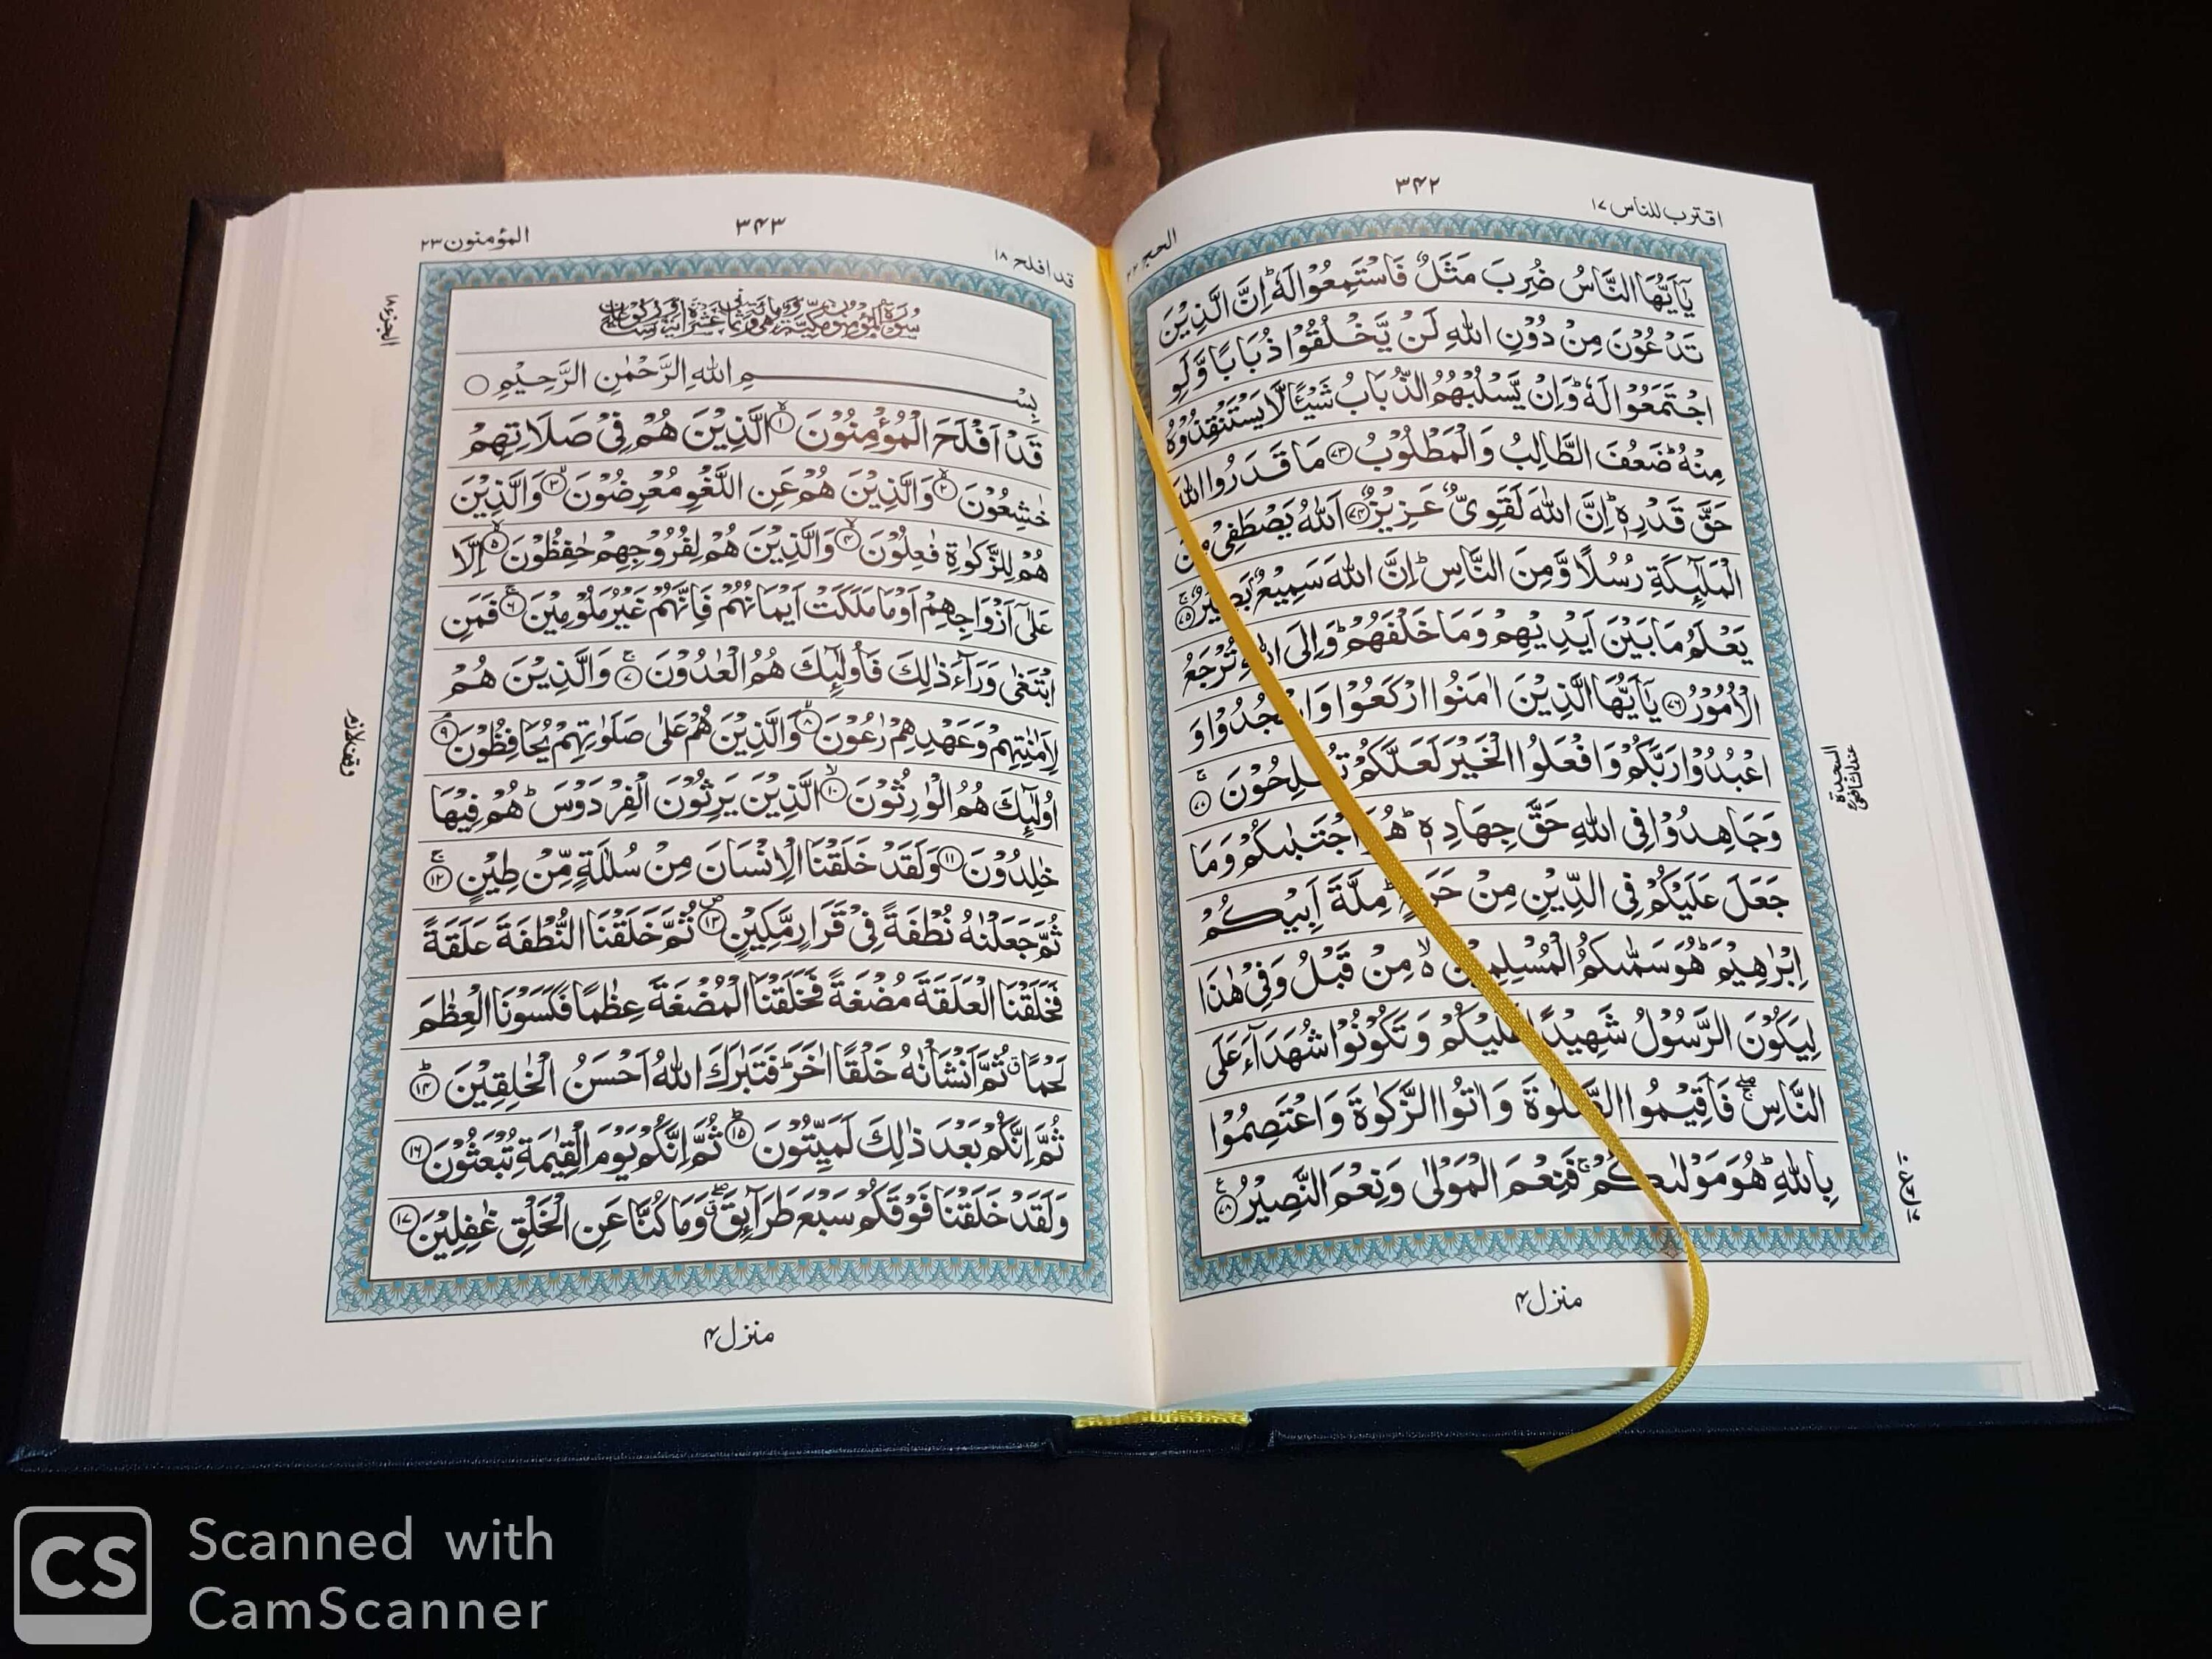 اقترب للناس ١٧
٣٤٢
الحج ٢٢
يٰۤاَيُّهَا النَّاسُ ضُرِبَ مَثَلٌ فَاسْتَمِعُوْا لَهٗ ؕ اِنَّ الَّذِيْنَ
تَدْعُوْنَ مِنْ دُوْنِ اللّٰهِ لَنْ يَّخْلُقُوْا ذُبَابًا وَّلَوِ
اجْتَمَعُوْا لَهٗ ؕ وَاِنْ يَّسْلُبْهُمُ الذُّبَابُ شَيْـًٔا لَّا يَسْتَنْقِذُوْهُ
مِنْهُ ؕ ضَعُفَ الطَّالِبُ وَالْمَطْلُوْبُ ٧٣ مَا قَدَرُوا اللّٰهَ
حَقَّ قَدْرِهٖ ؕ اِنَّ اللّٰهَ لَقَوِىٌّ عَزِيْزٌ ٧٤ اَللّٰهُ يَصْطَفِىْ مِنَ
الْمَلٰٓئِكَةِ رُسُلًا وَّمِنَ النَّاسِ ؕ اِنَّ اللّٰهَ سَمِيْعٌۢ بَصِيْرٌ ۚ ٧٥
يَعْلَمُ مَا بَيْنَ اَيْدِيْهِمْ وَمَا خَلْفَهُمْ ؕ وَاِلَى اللّٰهِ تُرْجَعُ
الْاُمُوْرُ ٧٦ يٰۤاَيُّهَا الَّذِيْنَ اٰمَنُوا ارْكَعُوْا وَاسْجُدُوْا وَ
اعْبُدُوْا رَبَّكُمْ وَافْعَلُوا الْخَيْرَ لَعَلَّكُمْ تُفْلِحُوْنَ ۚ ٧٧
وَجَاهِدُوْا فِى اللّٰهِ حَقَّ جِهَادِهٖ ؕ هُوَ اجْتَبٰىكُمْ وَمَا
جَعَلَ عَلَيْكُمْ فِى الدِّيْنِ مِنْ حَرَجٍ ؕ مِلَّةَ اَبِيْكُمْ
اِبْرٰهِيْمَ ؕ هُوَ سَمّٰىكُمُ الْمُسْلِمِيْنَ ۙ مِنْ قَبْلُ وَفِىْ هٰذَا
لِيَكُوْنَ الرَّسُوْلُ شَهِيْدًا عَلَيْكُمْ وَتَكُوْنُوْا شُهَدَآءَ عَلَى
النَّاسِ ۖۚ فَاَقِيْمُوا الصَّلٰوةَ وَاٰتُوا الزَّكٰوةَ وَاعْتَصِمُوْا
بِاللّٰهِ ؕ هُوَ مَوْلٰىكُمْ ۚ فَنِعْمَ الْمَوْلٰى وَنِعْمَ النَّصِيْرُ ٧٨
السجدة
عند الشافعى
منزل ۴
قد افلح ١٨
٣٤٣
المؤمنون ٢٣
الجزء ١٨
بِسْمِ اللّٰهِ الرَّحْمٰنِ الرَّحِيْمِ
قَدْ اَفْلَحَ الْمُؤْمِنُوْنَ ۙ ١ الَّذِيْنَ هُمْ فِىْ صَلَاتِهِمْ
خٰشِعُوْنَ ۙ ٢ وَالَّذِيْنَ هُمْ عَنِ اللَّغْوِ مُعْرِضُوْنَ ۙ ٣ وَالَّذِيْنَ
هُمْ لِلزَّكٰوةِ فٰعِلُوْنَ ۙ ٤ وَالَّذِيْنَ هُمْ لِفُرُوْجِهِمْ حٰفِظُوْنَ ۙ ٥ اِلَّا
عَلٰٓى اَزْوَاجِهِمْ اَوْ مَا مَلَكَتْ اَيْمَانُهُمْ فَاِنَّهُمْ غَيْرُ مَلُوْمِيْنَ ۚ ٦ فَمَنِ
ابْتَغٰى وَرَآءَ ذٰلِكَ فَاُولٰٓئِكَ هُمُ الْعٰدُوْنَ ۚ ٧ وَالَّذِيْنَ هُمْ
لِاَمٰنٰتِهِمْ وَعَهْدِهِمْ رٰعُوْنَ ۙ ٨ وَالَّذِيْنَ هُمْ عَلٰى صَلَوٰتِهِمْ يُحَافِظُوْنَ ۘ ٩
اُولٰٓئِكَ هُمُ الْوٰرِثُوْنَ ۙ ١٠ الَّذِيْنَ يَرِثُوْنَ الْفِرْدَوْسَ ؕ هُمْ فِيْهَا
خٰلِدُوْنَ ١١ وَلَقَدْ خَلَقْنَا الْاِنْسَانَ مِنْ سُلٰلَةٍ مِّنْ طِيْنٍ ۚ ١٢
ثُمَّ جَعَلْنٰهُ نُطْفَةً فِىْ قَرَارٍ مَّكِيْنٍ ۪ ١٣ ثُمَّ خَلَقْنَا النُّطْفَةَ عَلَقَةً
فَخَلَقْنَا الْعَلَقَةَ مُضْغَةً فَخَلَقْنَا الْمُضْغَةَ عِظٰمًا فَكَسَوْنَا الْعِظٰمَ
لَحْمًا ۗ ثُمَّ اَنْشَاْنٰهُ خَلْقًا اٰخَرَ ؕ فَتَبٰرَكَ اللّٰهُ اَحْسَنُ الْخٰلِقِيْنَ ؕ ١٤
ثُمَّ اِنَّكُمْ بَعْدَ ذٰلِكَ لَمَيِّتُوْنَ ؕ ١٥ ثُمَّ اِنَّكُمْ يَوْمَ الْقِيٰمَةِ تُبْعَثُوْنَ ١٦
وَلَقَدْ خَلَقْنَا فَوْقَكُمْ سَبْعَ طَرَآئِقَ ۖۗ وَمَا كُنَّا عَنِ الْخَلْقِ غٰفِلِيْنَ ١٧
وقف لازم
منزل ۴
CS
Scanned with
CamScanner